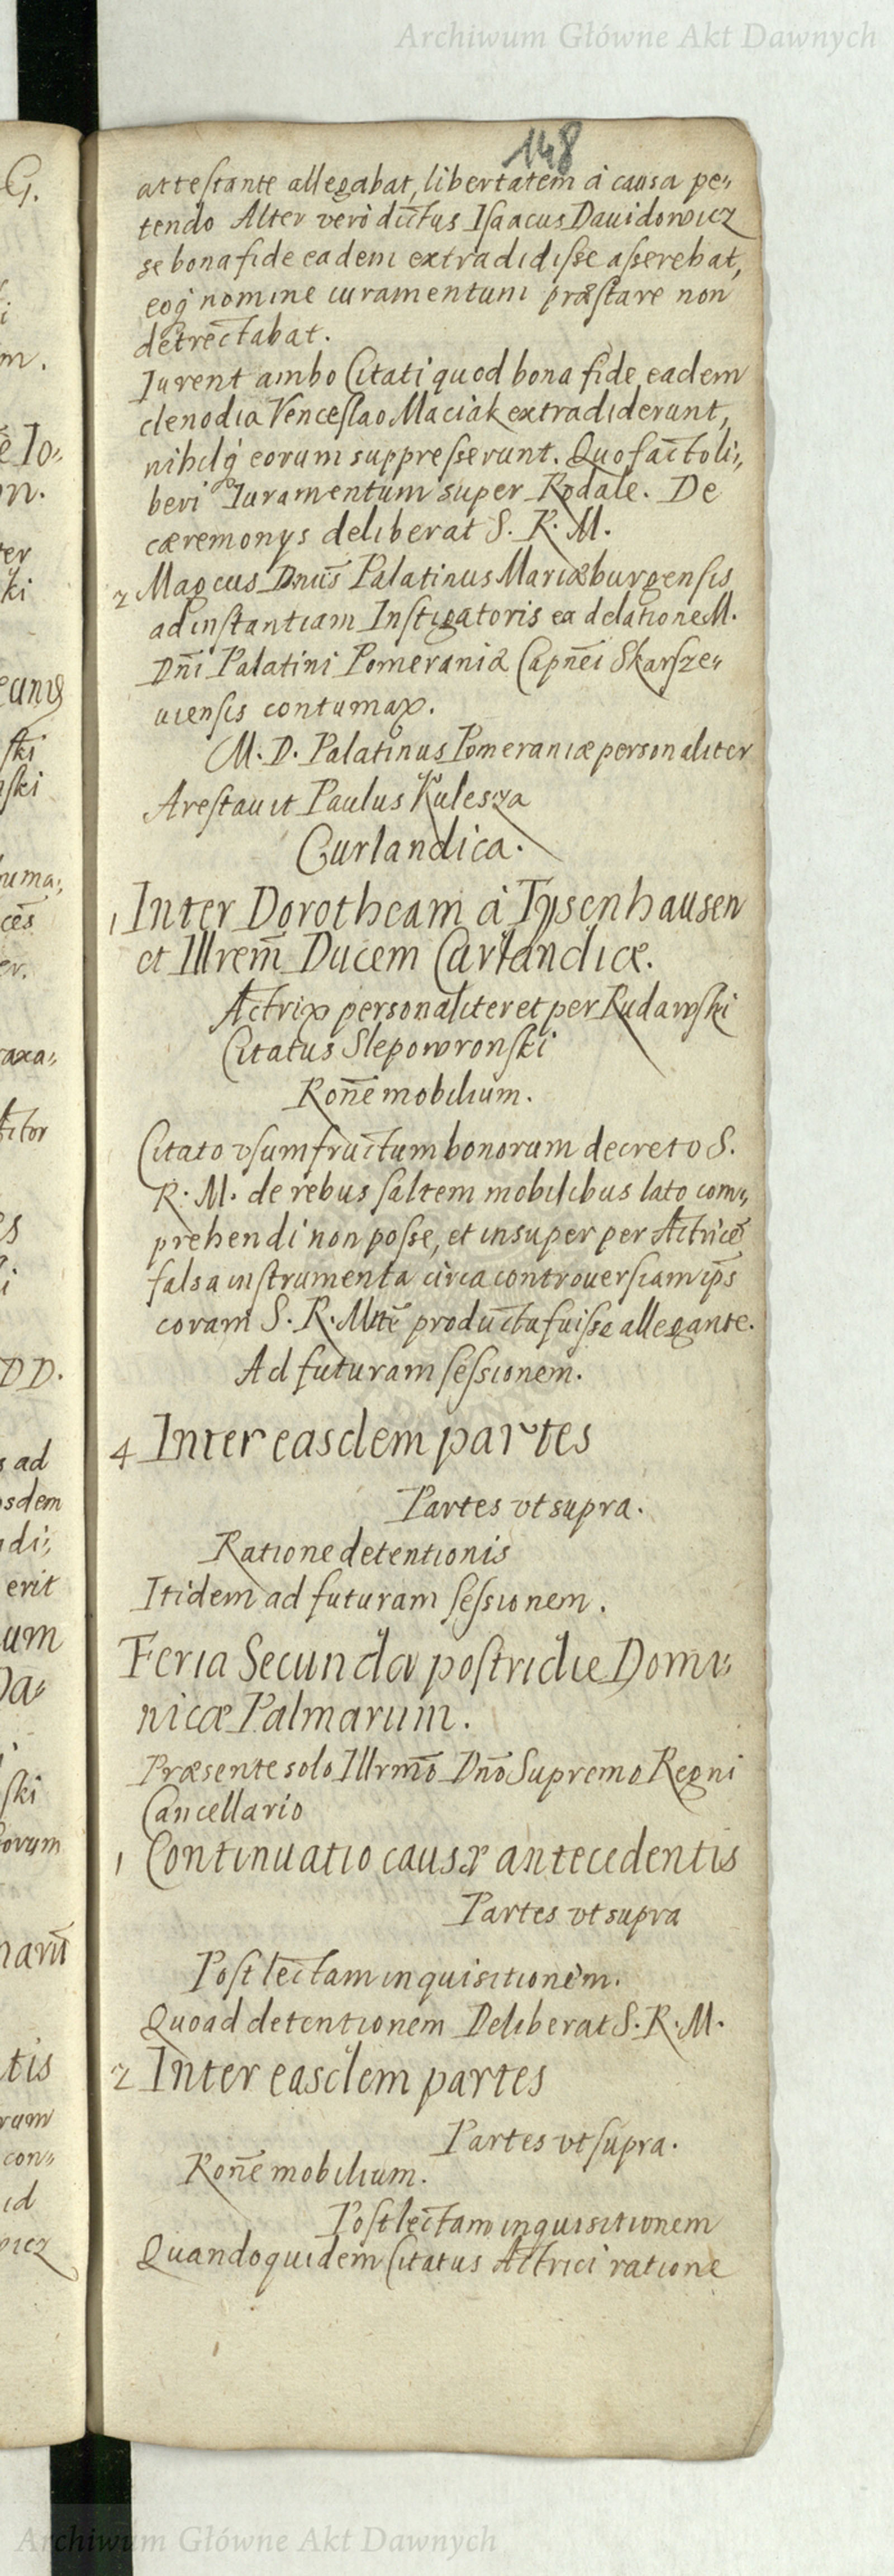 Archiwum Główne Akt Dawnych
148
attestante allegabat, libertatem à causa pe„
tendo Alter verò dictus Isaacus Dauidowicz
se bona fide eadem extradidisse asserebat,
eoq́ nomine iuramentum præstare non
detrectabat.
Iurent ambo Citati quod bona fide eadem
clenodia Venceslao Maciak extradiderunt,
nihilq́ eorum suppresserunt. Quo facto li„
beri Iuramentum super Rodale. De
cæremonys deliberat S. R. M.
2 Magcus Dnus Palatinus Mariæburgensis
ad instantiam Instigatoris ex delatione M.
Dñi Palatini Pomeraniæ Capñei Skarsze„
uiensis contumax.
M. D. Palatinus Pomeraniæ personaliter
Arestauit Paulus Kulesza
Curlandica.
1 Inter Dorotheam à Tysenhausen
et Illrem̃ Ducem Curlandiæ.
Actrix personaliter et per Rudawski
Citatus Slepowronski
Roñe mobilium.
Citato vsumfructum bonorum decreto S.
R. M. de rebus saltem mobilibus lato com„
prehendi non posse, et insuper per Actricẽ
falsa instrumenta circa controuersiam ip̃s
coram S. R. Mtẽ producta fuisse allegante.
Ad futuram sessionem.
4 Inter easdem partes
Partes vt supra.
Ratione detentionis
Itidem ad futuram sessionem.
Feria Secunda postridie Domi„
nicæ Palmarum.
Præsente solo Illrmõ Dnõ Supremo Regni
Cancellario
1 Continuatio causæ antecedentis
Partes vt supra
Post lectam inquisitionem.
Quoad detentionem Deliberat S. R. M.
2 Inter easdem partes
Partes vt supra.
Roñe mobilium.
Post lectam inquisitionem
Quandoquidem Citatus Actrici ratione
Archiwum Główne Akt Dawnych